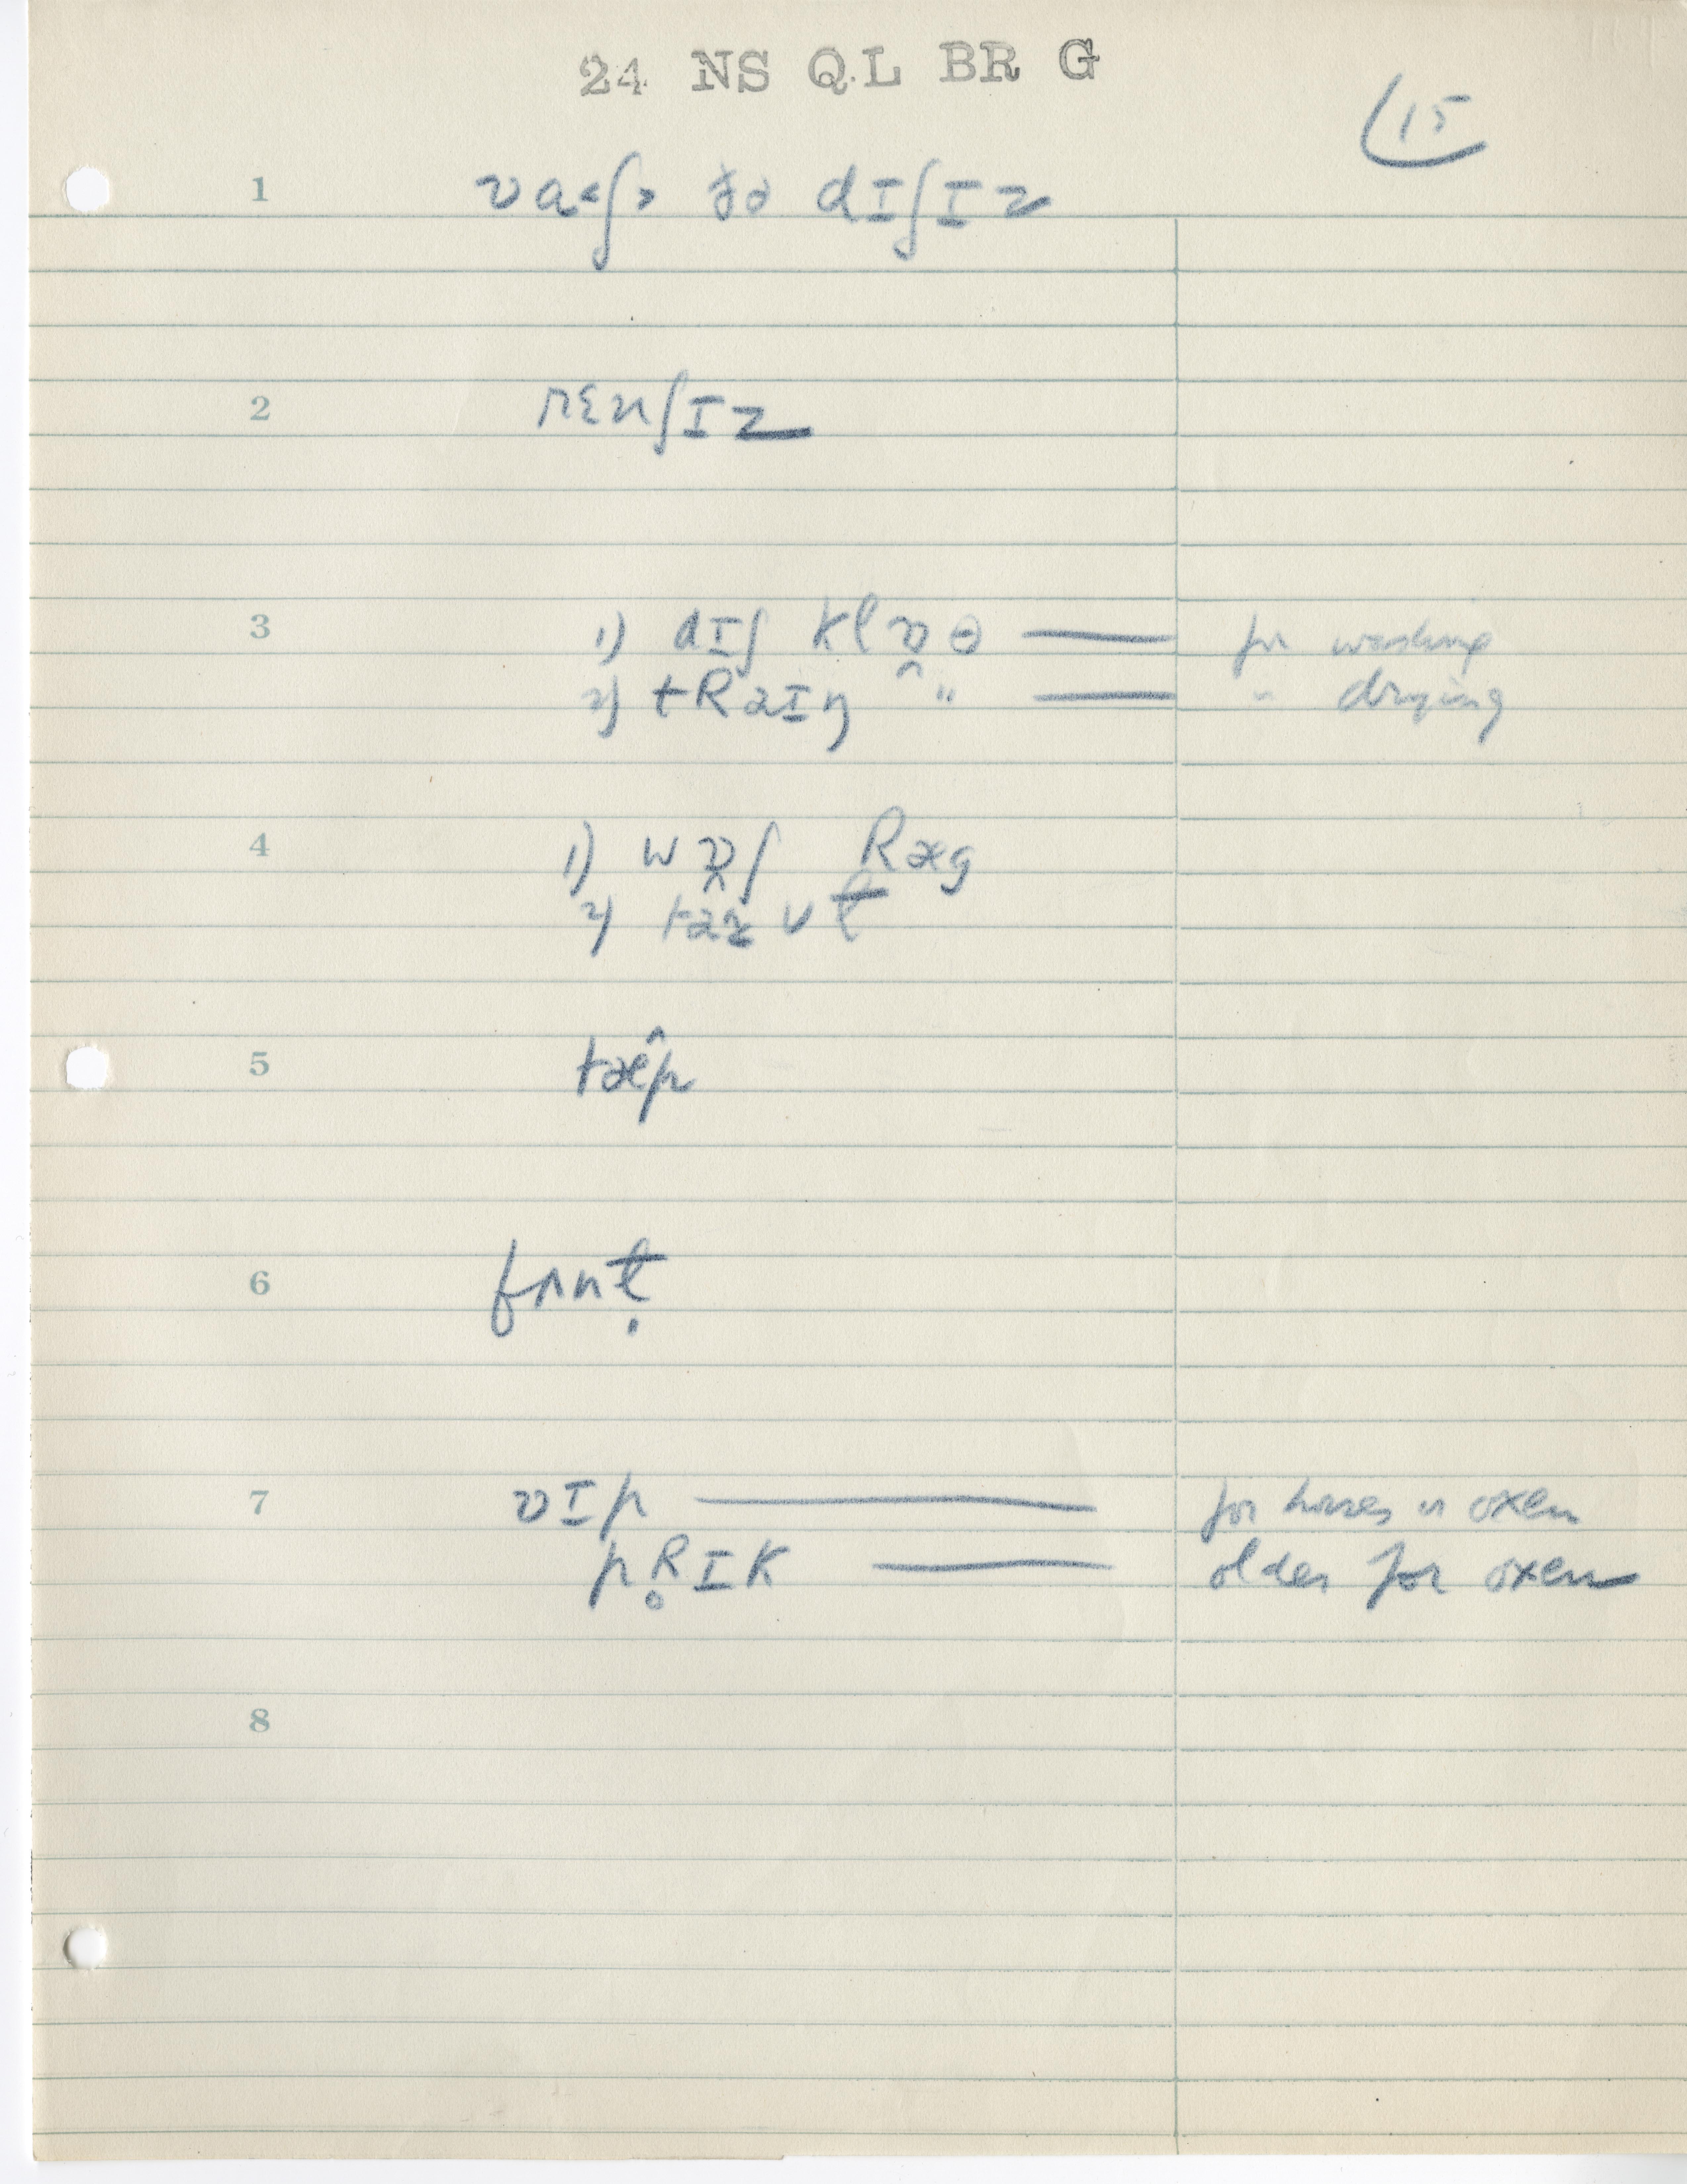 24 NS QL BR G
15
1 va<ʃ> ðə dɪʃɪz
2 rɛnʃɪz
3 1) dɪʃ klɒ̭θ — for washing
2) tRaɪŋ " — " drying
4 1) wɒʃ Ræg
2)
5
6
7 vɪp — for horses or oxen
pR̥ɪk — older for oxen
8